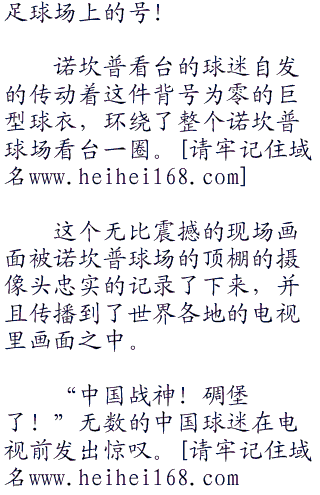 足球场上的号！
诺坎普看台的球迷自发
的传动着这件背号为零的巨
型球衣，环绕了整个诺坎普
球场看台一圈。[请牢记住域
名www.heihei168.com]
这个无比震撼的现场画
面被诺坎普球场的顶棚的摄
像头忠实的记录了下来，并
且传播到了世界各地的电视
里画面之中。
“中国战神！碉堡
了！”无数的中国球迷在电
视前发出惊叹。[请牢记住域
名www.heihei168.com